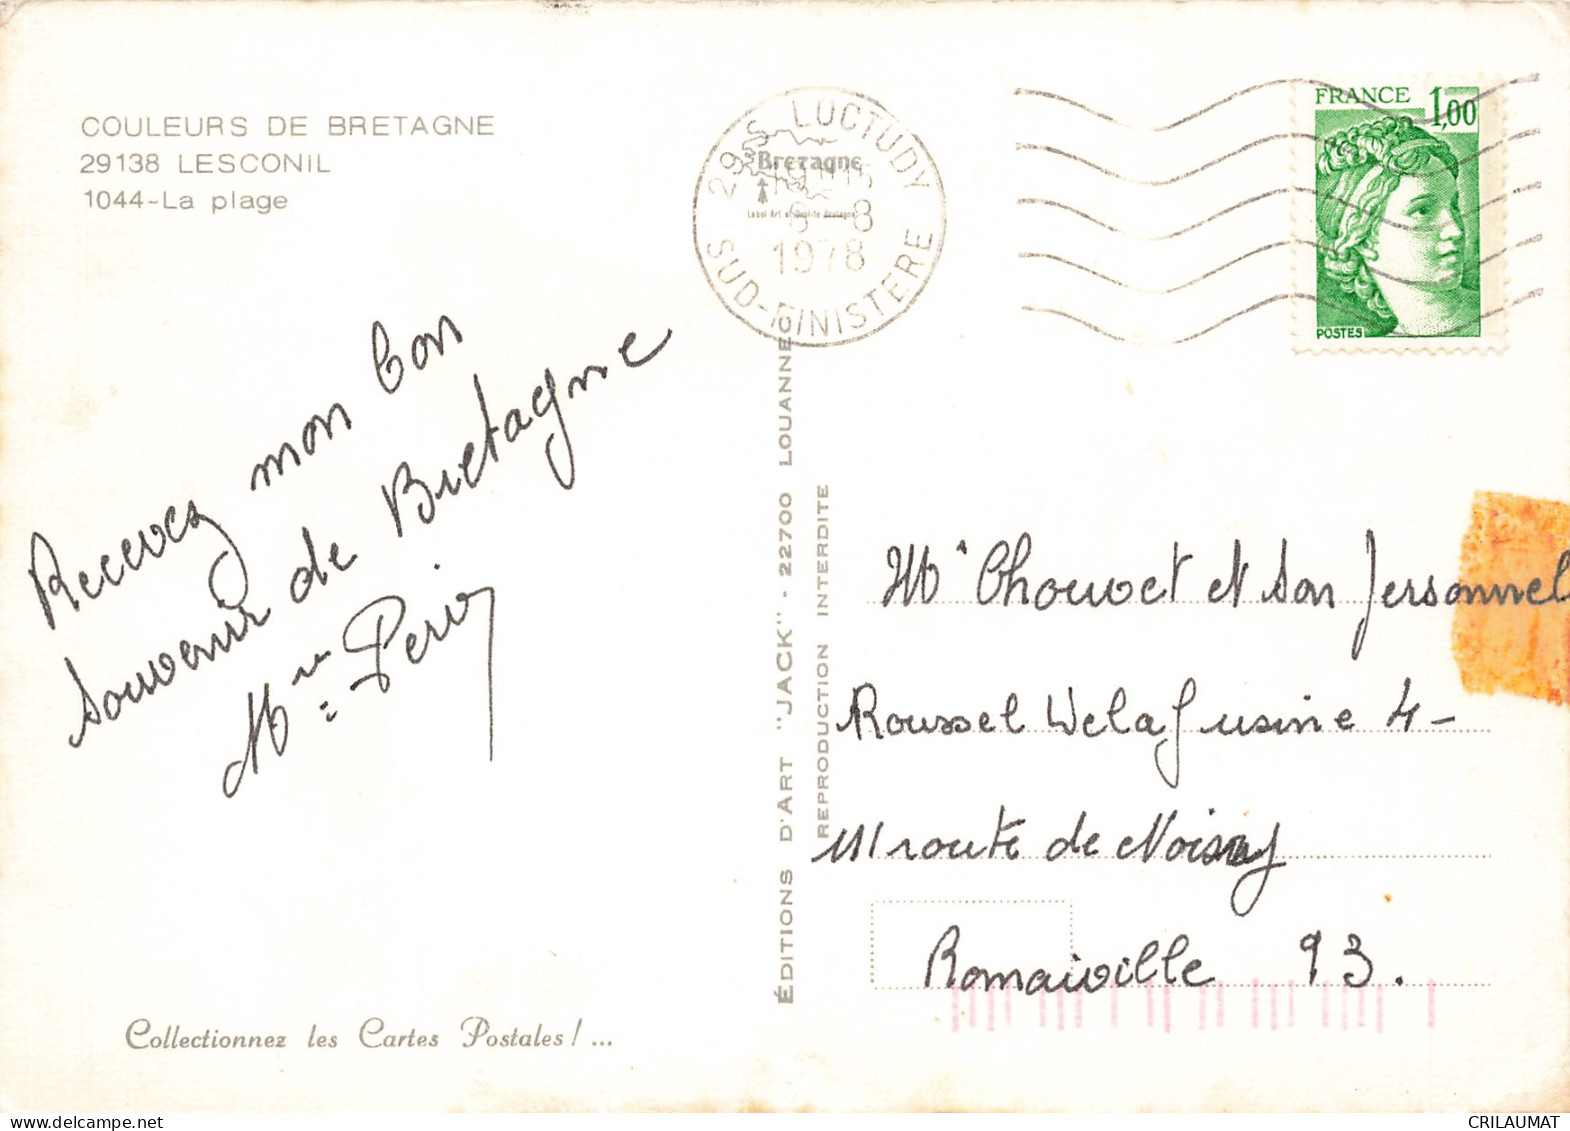 COULEURS DE BRETAGNE
29138 LESCONIL
1044-La plage
29 S LOCTUDY
Bretagne
Label Art et Qualité Bretagne
8-8
1978
SUD-FINISTERE
FRANCE 1,00
POSTES
Recevez mon bon
souvenir de Bretagne
Mme
Mr Chouvet et son personnel
Roussel Uclaf usine 4-
111 route de Noisy
Romaiville 93.
ÉDITIONS D'ART "JACK" - 22700 LOUANNEC
REPRODUCTION INTERDITE
Collectionnez les Cartes Postales ! ...
CRILAUMAT